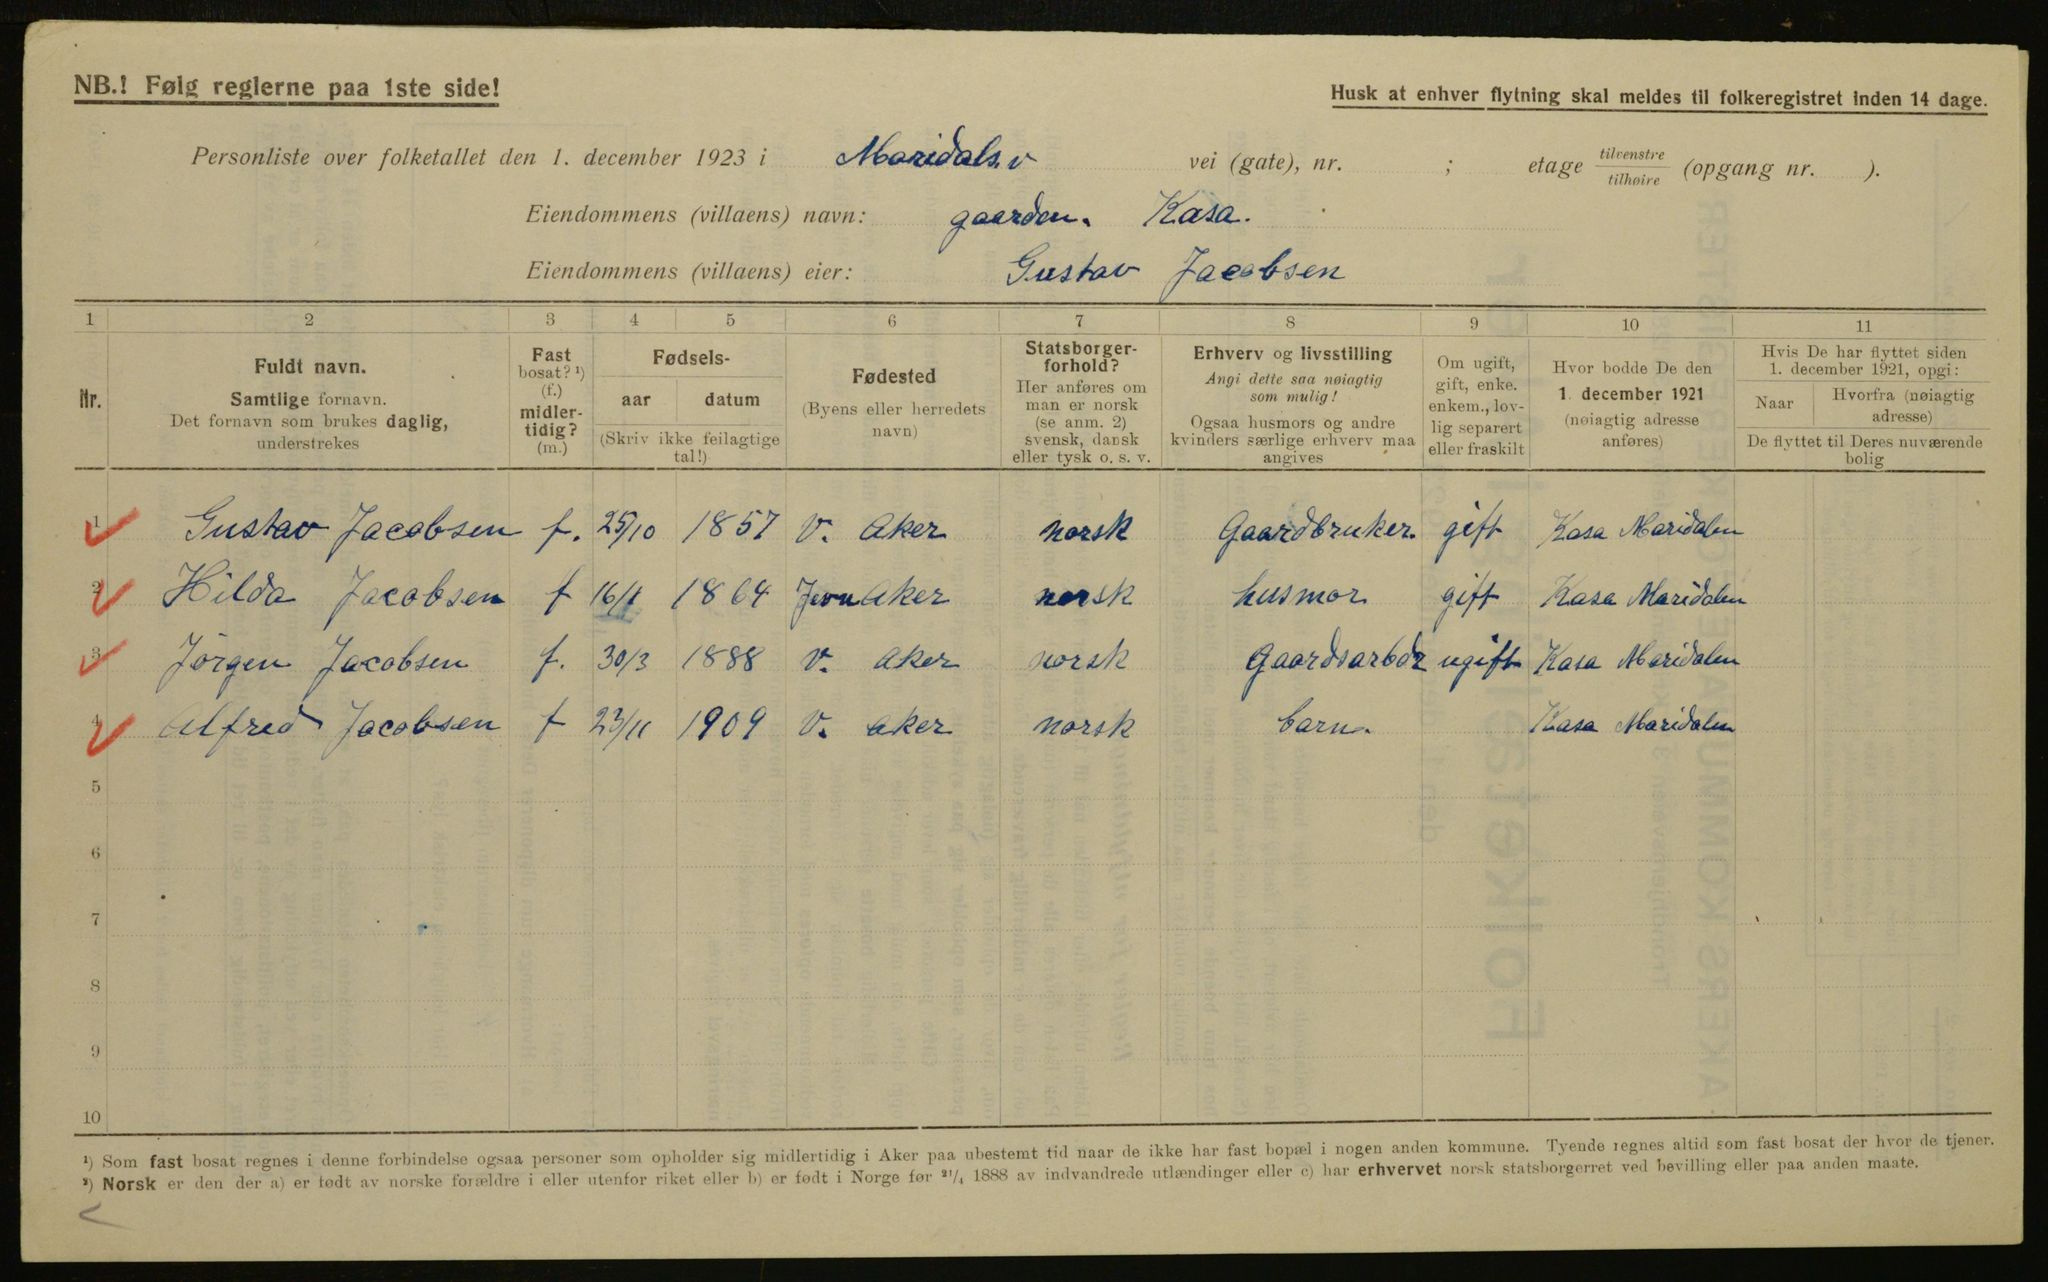 NB.! Følg reglerne paa 1ste side!
Husk at enhver flytning skal meldes til folkeregistret inden 14 dage.
Personliste over folketallet den 1. december 1923 i Maridals.v vei (gate), nr. ; etage tilvenstre tilhøire (opgang nr. ).
Eiendommens (villaens) navn: gaarden. Kasa.
Eiendommens (villaens) eier: Gustav Jacobsen
1 2 3 4 5 6 7 8 9 10 11
Nr.
Fuldt navn.
Samtlige fornavn.
Det fornavn som brukes daglig,
understrekes
Fast
bosat? ¹)
(f.)
midler-
tidig?
(m.)
Fødsels-
aar datum
(Skriv ikke feilagtige
tal!)
Fødested
(Byens eller herredets
navn)
Statsborger-
forhold?
Her anføres om
man er norsk
(se anm. 2)
svensk, dansk
eller tysk o. s. v.
Erhverv og livsstilling
Angi dette saa nøiagtig
som mulig!
Ogsaa husmors og andre
kvinders særlige erhverv maa
angives
Om ugift,
gift, enke.
enkem., lov-
lig separert
eller fraskilt
Hvor bodde De den
1. december 1921
(nøiagtig adresse
anføres)
Hvis De har flyttet siden
1. december 1921, opgi:
Naar
Hvorfra (nøiagtig
adresse)
De flyttet til Deres nuværende
bolig
1 Gustav Jacobsen f. 25/10 1857 V. Aker norsk Gaardbruker. gift Kasa Maridalen
2 Hilda Jacobsen f 16/1 1864 Aker norsk husmor gift Kasa Maridalen
3 Jörgen Jacobsen f. 30/3 1888 V. Aker norsk Gaardsarbdr ugift Kasa Maridalen
4 Alfred Jacobsen f 23/11 1909 V. Aker norsk barn. Kasa Maridalen
5
6
7
8
9
10
¹) Som fast bosat regnes i denne forbindelse ogsaa personer som opholder sig midlertidig i Aker paa ubestemt tid naar de ikke har fast bopæl i nogen anden kommune. Tyende regnes altid som fast bosat der hvor de tjener.
²) Norsk er den der a) er født av norske forældre i eller utenfor riket eller b) er født i Norge før ²¹/₄ 1888 av indvandrede utlændinger eller c) har erhvervet norsk statsborgerret ved bevilling eller paa anden maate.